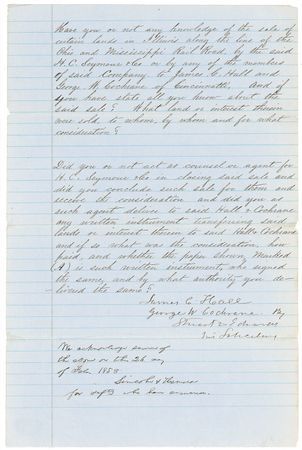 Have you or not any knowledge of the sale of
certain lands in Illinois along the line of the
Ohio and Mississippi Rail Road, by the said
H. C. Seymour & Co or by any of the members
of said Company to James C. Hall and
George W. Cochrane of Cincinnatti, And if
you have state all you know about the
said sale? What land or interest therein
was sold to whom, by whom and for what
consideration?
Did you or not act as counsel or agent for
H. C. Seymour & Co in closing said sale and
did you conclude such sale for them and
receive the consideration and did you as
such agent deliver to said Hall & Cochrane
any written instrument transferring said
lands or interest therein to said Hall & Cochrane
and if so what was the consideration, how
paid, and whether the paper shown, marked
(A) is such written instrument, who signed
the same, and by what authority you de-
livered the same?
James C Hall
George W Cochrane By
Stuart & Edwards
Solicitors
We acknowledge service of
the above on this 26 day
of Feb. 1858
Lincoln & Herndon
for